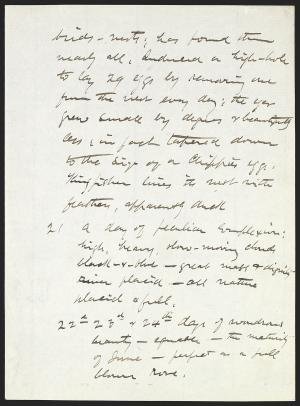 birds-nests; has found them
nearly all; induced a high-hole
to lay 29 eggs by removing one
from the nest every day; the eggs
grew small by degrees & beautifully
less; in fact tapered down
to the size of a Chippies egg.
Kingfisher lines its nest with
feathers, apparently duck
21 A day of peculiar complexion;
high, heavy, slow-moving clouds
black-&-blue – great mass & dignity
river placid – all nature
placid & full.
22d 23d & 24th days of wondrous
beauty – equable – the maturity
of June – perfect as a full
blown rose.